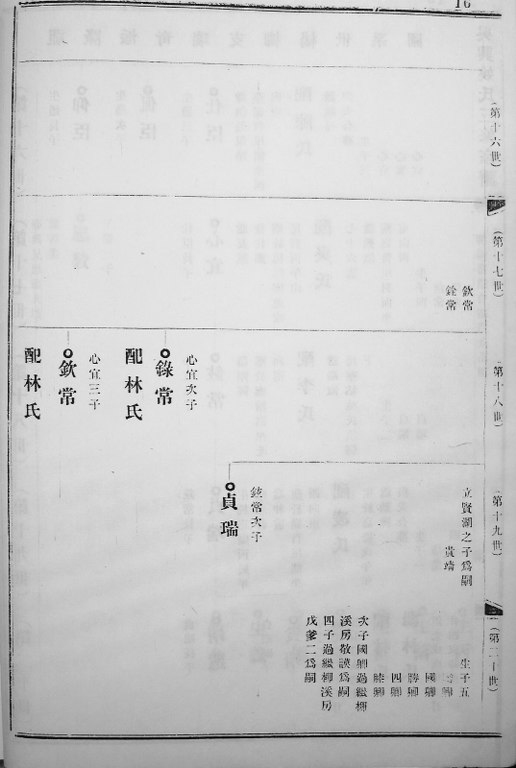 16
(第十六世)
(第十七世)
欽常
銓常
(第十八世)
心宜次子
錄常
配林氏
心宜三子
欽常
配林氏
(第十九世)
立賢湖之子爲嗣
貴靖
鉉常次子
貞瑞
(第二十世)
生子五
國卿
勝卿
四卿
睦卿
次子國卿過繼柳
溪房敬謨爲嗣
四子過繼柳溪房
戊爹二爲嗣